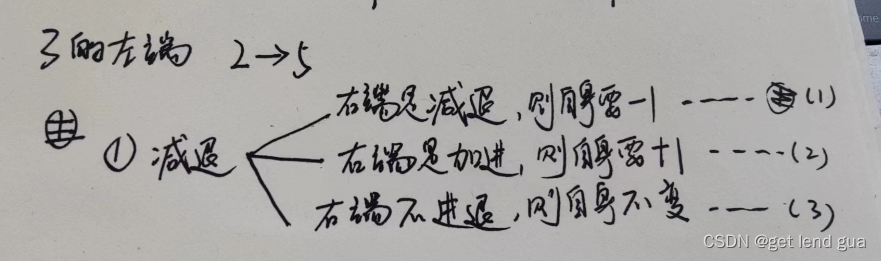 3的左端 2→5
右端是减退,则自身需-1 ---- (1)
① 减退
右端是加进,则自身需+1 ----(2)
右端不进退,则自身不变 ---- (3)
CSDN @get lend gua